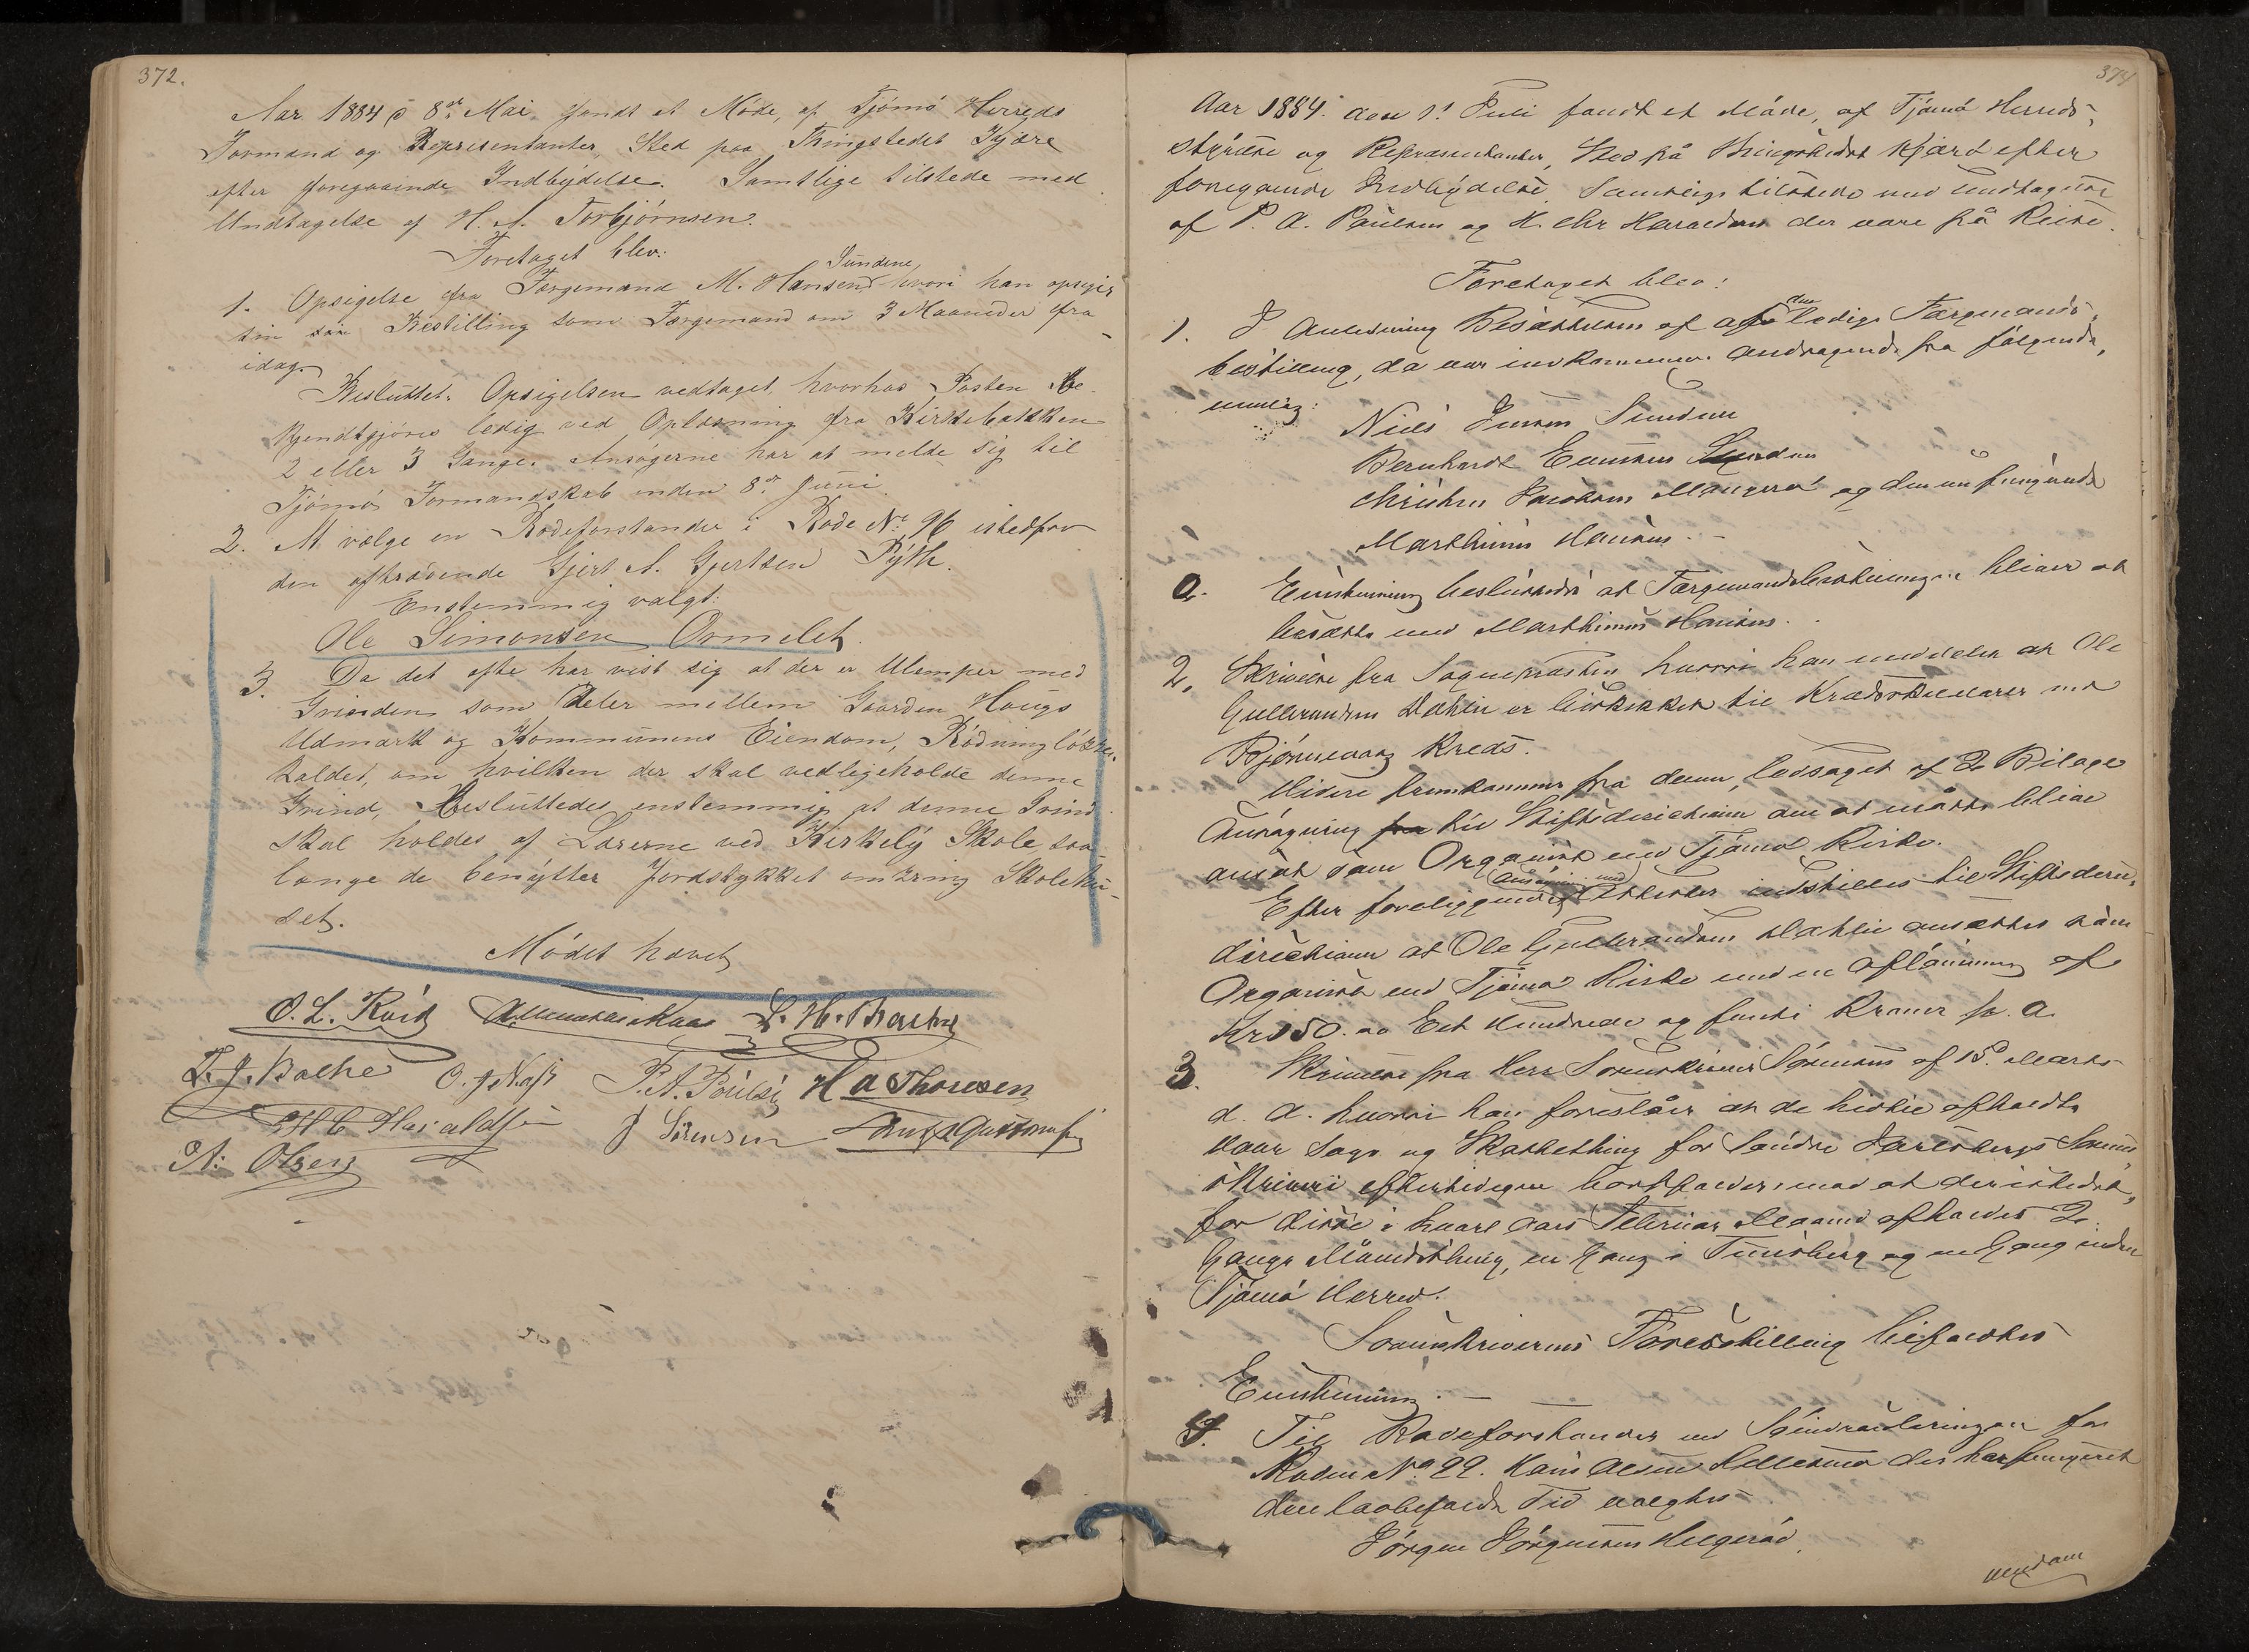 372.
Aar 1884 d 8de Mai fandt et Møde, af Tjømø Herreds
Formænd og Representanter, Sted paa Thingstedet Kjære
efter foregaaende Indbÿdelse. Samtlige tilstede med
Undtagelse af H. A. Torbjørnsen.
Foretaget blev:
1. Opsigelse fra Færgemand M. Hansen Sundene, hvori han opsiger
sin Bestilling som Færgemand om 3 Maaneder fra
idag.
Besluttet. Opsigelsen vedtaget, hvorhos Posten be-
kjendtgjøres ledig ved Oplæsning fra Kirkebakken
2 eller 3 Gange. Ansøgerne har at melde sig til
Tjømø Formandskab inden 8de Juni.
2. At vælge en Rodeforstander i Rode No 96 istedfor
den aftrædende Gjert A. Gjertsen Pÿth.
Enstemmig valgt:
Ole Simonsen Ormelet.
3. Da det ofte har vist sig at der er Ulemper med
Grinden som deler mellem Gaarden Haugs
Udmark og Kommunens Eiendom, Rødningløkken
kaldet, om hvilken der skal vedligeholde denne
Grind, besluttedes enstemmig at denne Grind
skal holdes af Lærerne ved Kirkelÿ Skole saa
længe de benÿtter Jordstykket omkring Skolehu-
set.
Mødet hævet
O. L. Røed L. H. Bache
L. J. Bache O. J. Næss P. A. Poulsen H A Thoresen
H C Haraldsen J Sørensen
A: Olsen
374
Aar 1884 den 1ste Juli fandt et Møde, af Tjømø Herreds-
styrelse og Repræsentanter, Sted på Thingstedet Kjære efter
foregaaende Indbÿdelse. Samtlige tilstede med Undtagelse
af P. A. Paulsen og H. Chr Haraldsen der vare på Reise.
Foretaget blev:
1. I Anledning Besættelsen af den ledige Færgemands-
bestilling, da var indkommen Andragende fra følgende,
nemlig:
Niels Jensen Sundene
Bernhardt Evensen Sundene
Christen Jacobsen Mangerø og den nu fungerende
Marthinius Hansen. -
a. Enstemmig besluttedes at Færgemandsbestillingen bliver at
besætte med Marthinius Hansen.
2. Skrivelse fra Sognepræsten hvori han meddeler at Ole
Gulbrandsen Dæhlie er beskikket til Kredsskolelærer ved
Bjørnevaag Kreds.
Videre fremkommer fra denne, ledsaget af 2 Bilage
Ansøgning til Stiftsdirectionen om at måtte blive
ansat som Organist ved Tjømø Kirke.
Efter foreliggende Ansøgning med Attester indstilles til Stifts-
directionen at Ole Gulbrandsen Dæhlie ansættes som
Organist ved Tjømø Kirke med en Aflønning af
Kr 150. oo Eet Hundrede og femti Kroner pr. A.
3. Skrivelse fra Herr Sorenskriver Sørensen af 15d Marts
d. A. hvori han foreslår at de hidtil afholdte
Vaar Sage og Skattething for Søndre Jarlsbergs Soren-
skriveri eftertidigen bortfalder, mod at der istedet,
for disse i hvert Aars Februar Maaned afholdes 2
Gange Måned
sthing, en Gang i Tønsberg og en Gang inden
Tjømø Herred.
Sorenskriverens Forestilling bifaldtes
Enstemmig. -
4. Til Rodeforstander ved Sundrødleringen for
Roden No 99. Hans Olsen der har fungeret
den lovbefalede Tid valgtes
Jørgen Jørgensen Helgerød.
vendom